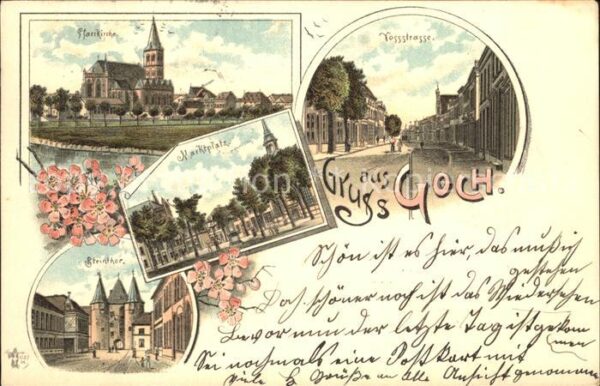 Pfarrkirche.
Vossstrasse.
Marktplatz.
Gruss aus GOCH.
Steinthor.
Schön ist es hier, das muß ich
gestehen
Doch schöner noch ist das Wiedersehen
Bevor nun der letzte Tag ist gekom
men
Sei nochmals eine Postkart mit
Grüße an Alle Ansicht genommen